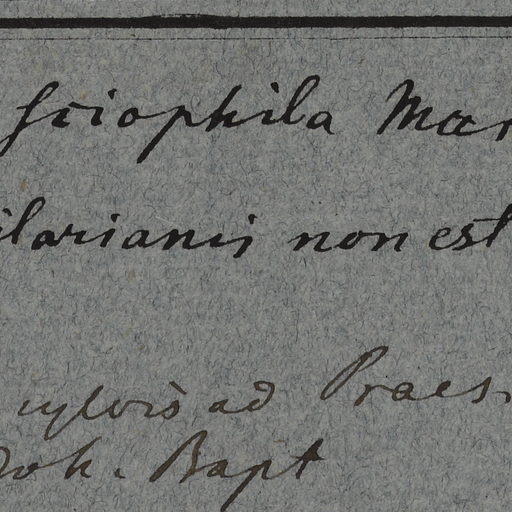 sciophila Mar
ilarianis non est
in sylvis ad Praes.
Joh. Bapt